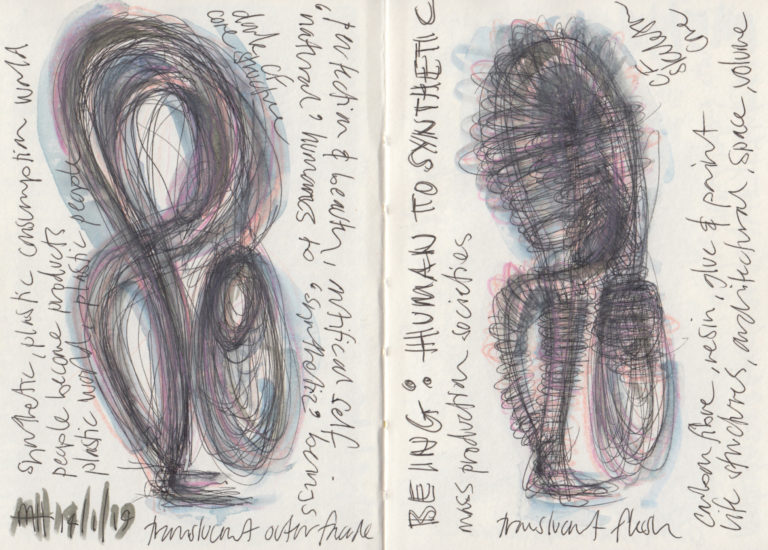 synthetic, plastic consumption world
people become products
plastic world, plastic people
dark CF
core structure
perfection & beauty, artificial self
'natural' humans to 'synthetic' beings
MH 14/1/19
translucent outer facade
BEING: HUMAN TO SYNTHETIC
mass production societies
CF
skeleton
core
translucent flesh
carbon fibre, resin, glue & paint
life structures, architectural, space, volume